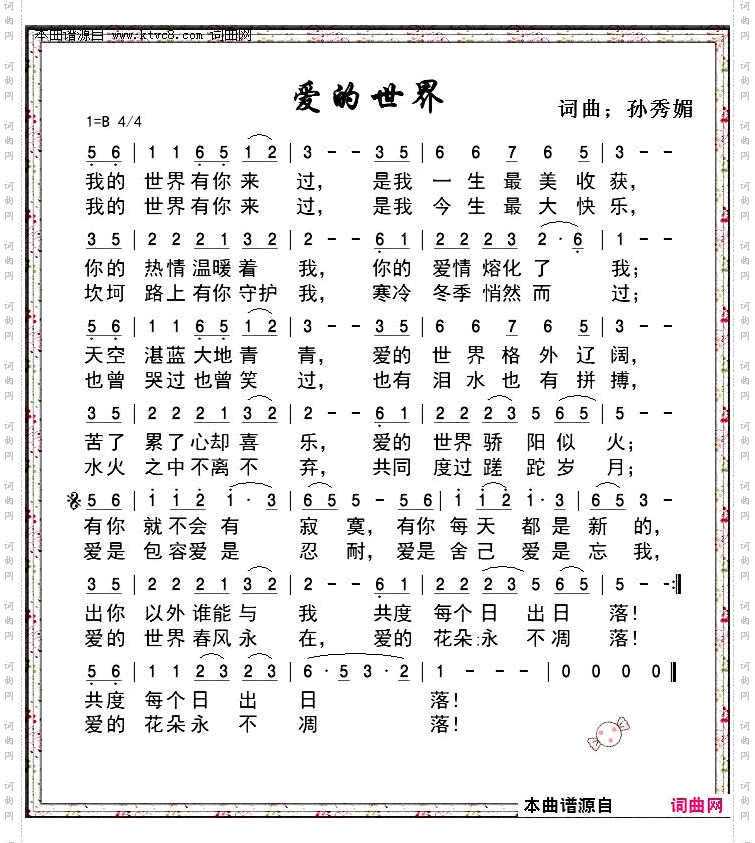 本曲谱源自 www.ktvc8.com 词曲网
爱的世界
词曲；孙秀媚
1=B 4/4
5 6 | 1 1 6 5 1 2 | 3 - - 3 5 | 6 6 7 6 5 | 3 - -
我的 世界有你来 过， 是我 一 生 最 美 收 获，
我的 世界有你来 过， 是我 今 生 最 大 快 乐，
3 5 | 2 2 2 1 3 2 | 2 - - 6 1 | 2 2 2 3 2 · 6 | 1 - -
你的 热情温暖着 我， 你的 爱情 熔化 了 我；
坎坷 路上有你守护 我， 寒冷 冬季 悄然 而 过；
5 6 | 1 1 6 5 1 2 | 3 - - 3 5 | 6 6 7 6 5 | 3 - -
天空 湛蓝大地青 青， 爱的 世 界 格 外 辽 阔，
也曾 哭过也曾笑 过， 也有 泪 水 也 有 拼 搏，
3 5 | 2 2 2 1 3 2 | 2 - - 6 1 | 2 2 2 3 5 6 5 | 5 - -
苦了 累了心却喜 乐， 爱的 世界 骄 阳 似 火；
水火 之中不离不 弃， 共同 度过 蹉 跎 岁 月；
5 6 | 1 1 2 1 · 3 | 6 5 5 - 5 6 | 1 1 2 1 · 3 | 6 5 3 -
有你 就不会有 寂 寞，有你 每天 都 是 新 的，
爱是 包容爱是 忍 耐，爱是 舍己 爱 是 忘 我，
3 5 | 2 2 2 1 3 2 | 2 - - 6 1 | 2 2 2 3 5 6 5 | 5 - - :‖
出你 以外谁能与 我 共度 每个 日 出 日 落！
爱的 世界春风永 在， 爱的 花朵 永 不 凋 落！
5 6 | 1 1 2 3 2 3 | 6 · 5 3 · 2 | 1 - - - | 0 0 0 0 ‖
共度 每个日 出 日 落！
爱的 花朵永 不 凋 落！
本曲谱源自 词曲网